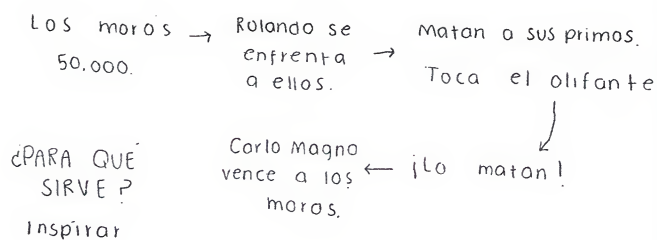 Los moros
50.000.
→ Rolando se
enfrenta
a ellos.
→ Matan a sus primos.
Toca el olifante
¡Lo matan!
← Carlo Magno
vence a los
moros.
¿PARA QUÉ
SIRVE?
Inspirar